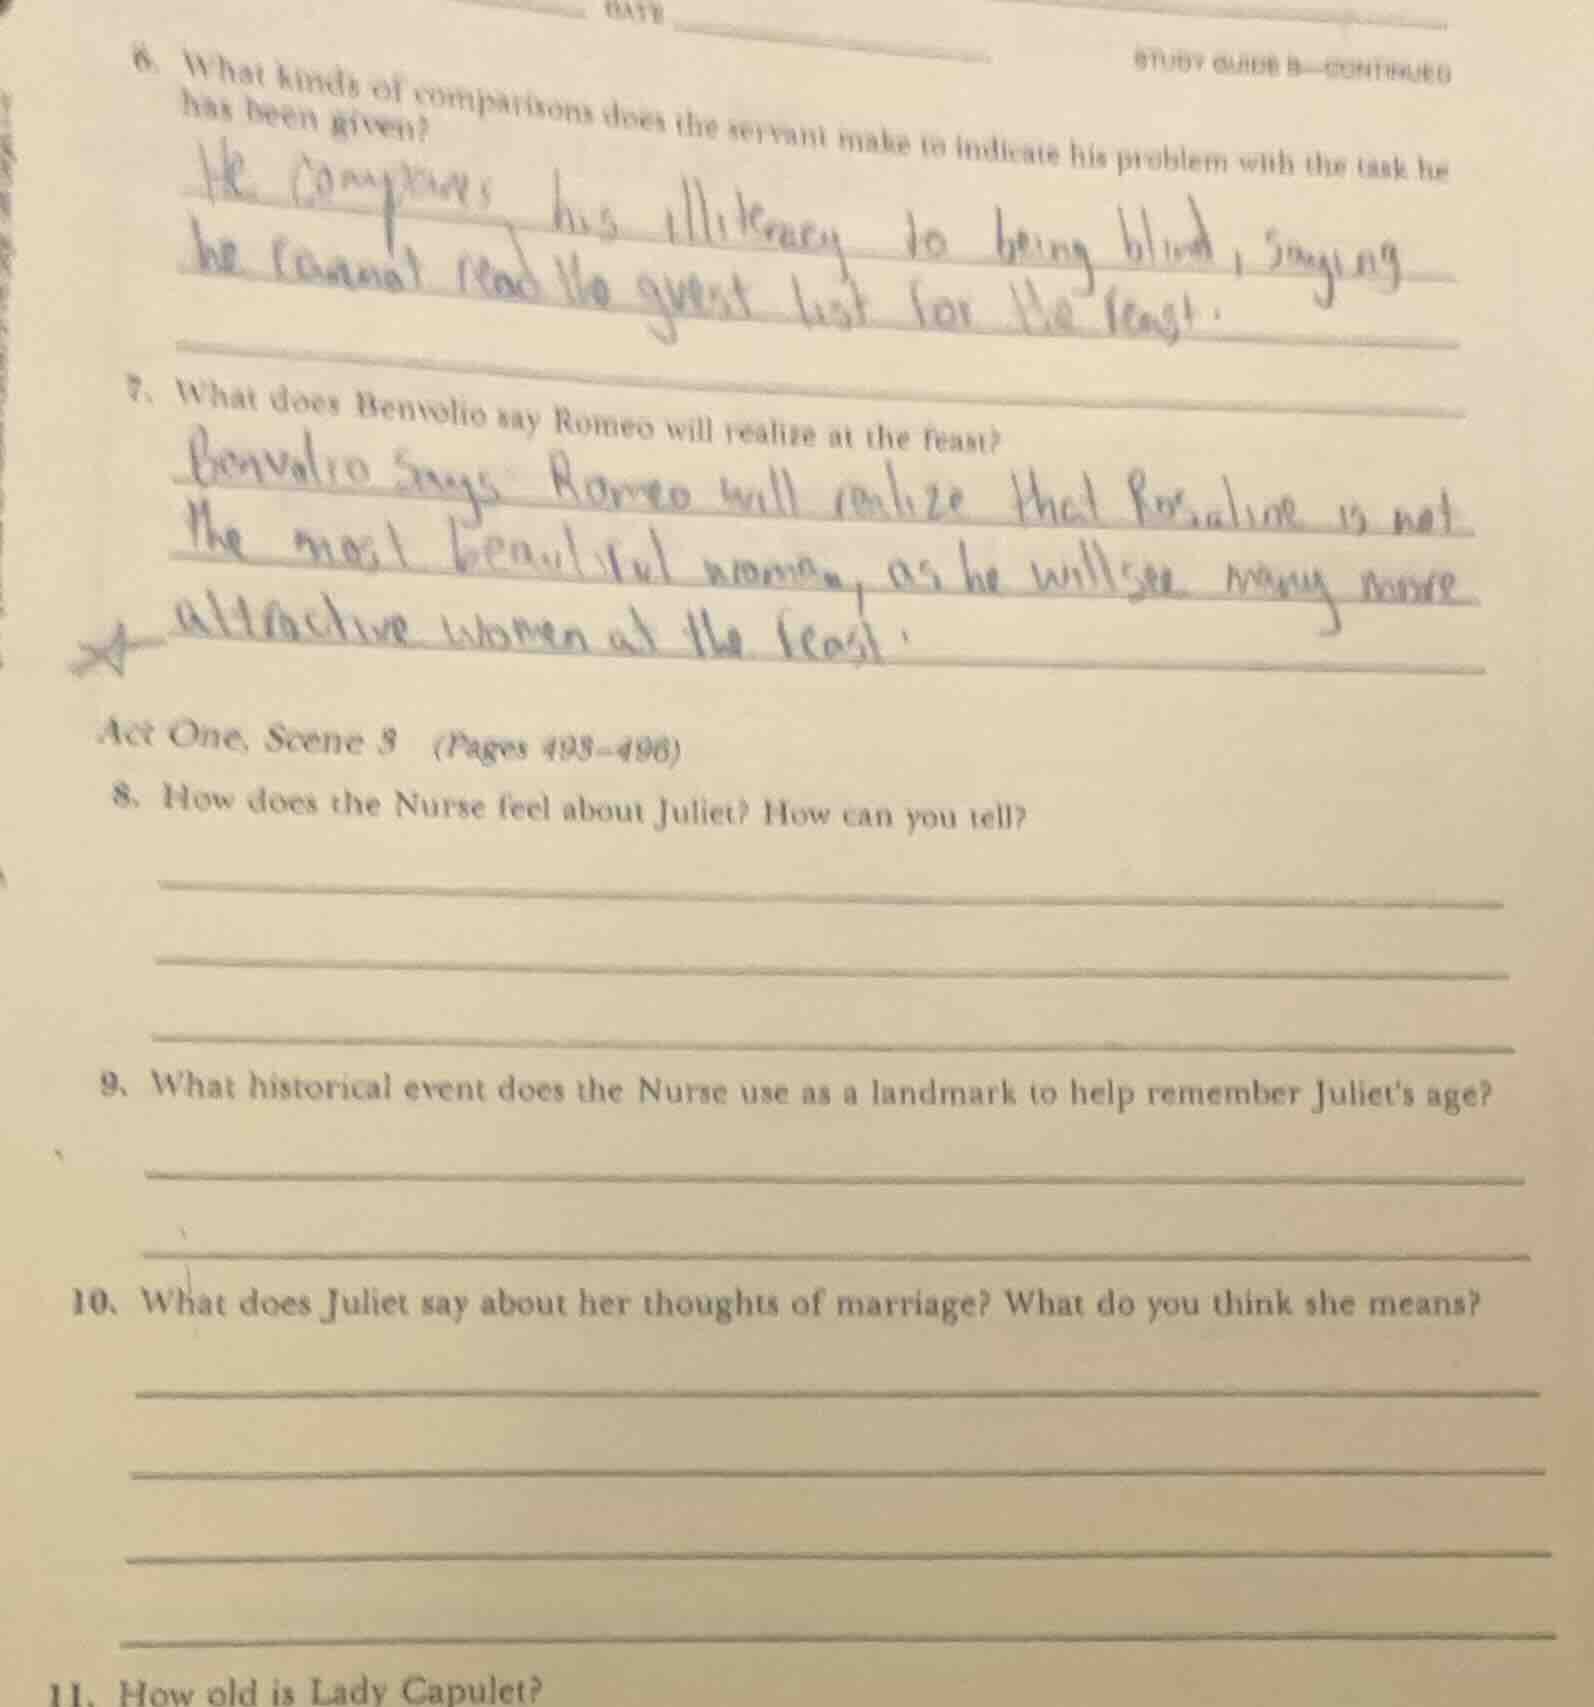 DATE
STUDY GUIDE B—CONTINUED
6. What kinds of comparisons does the servant make to indicate his problem with the task he
has been given?
He compares his illiteracy to being blind, saying
he cannot read the guest list for the feast.
7. What does Benvolio say Romeo will realize at the feast?
Benvolio says Romeo will realize that Rosaline is not
the most beautiful woman, as he will see many more
attractive women at the feast.
Act One, Scene 3 (Pages 493–496)
8. How does the Nurse feel about Juliet? How can you tell?
9. What historical event does the Nurse use as a landmark to help remember Juliet's age?
10. What does Juliet say about her thoughts of marriage? What do you think she means?
11. How old is Lady Capulet?